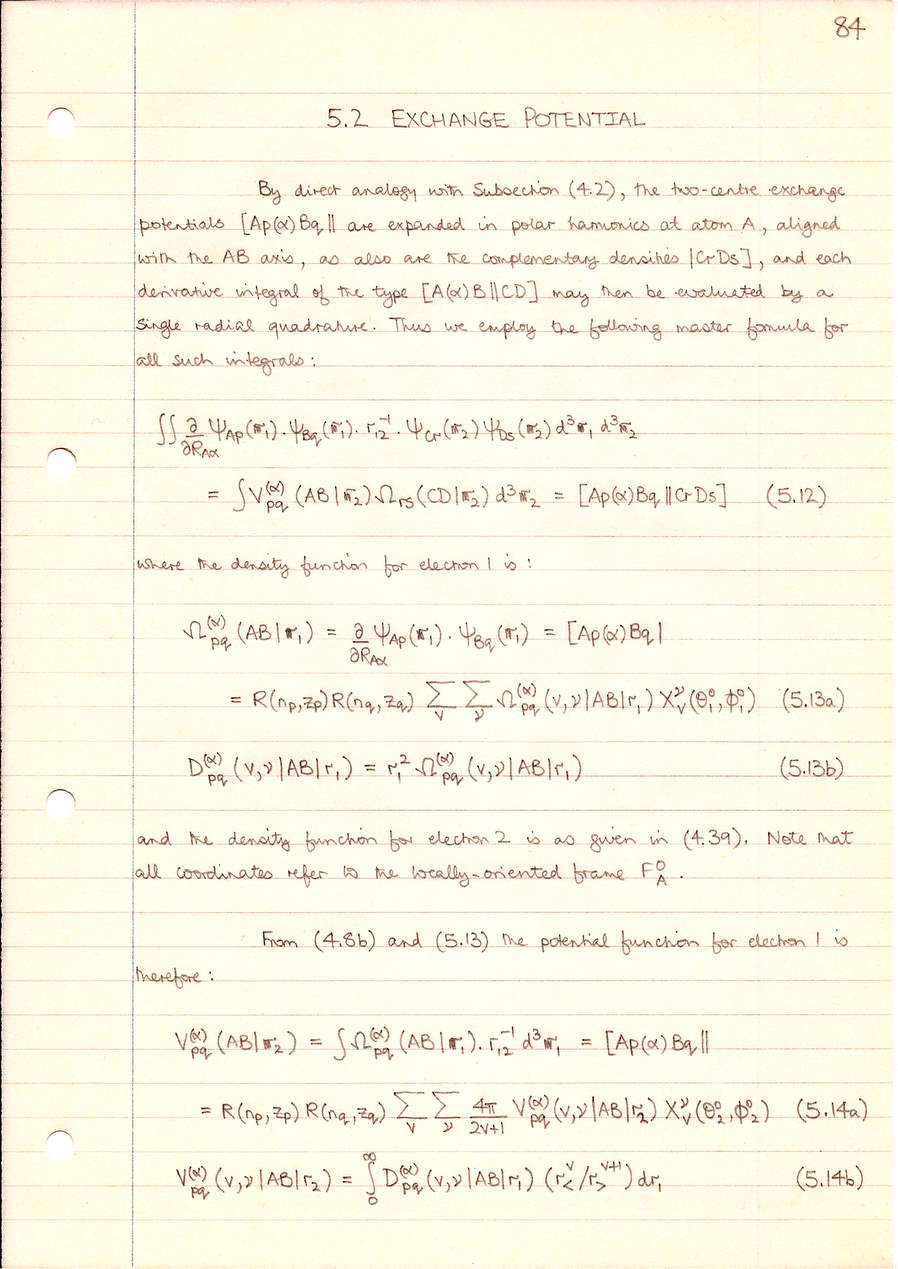 84
5.2 EXCHANGE POTENTIAL
By direct analogy with Subsection (4.2), the two-centre exchange
potentials [Ap(α)Bq‖ are expanded in polar harmonics at atom A, aligned
with the AB axis, as also are the complementary densities |CrDs], and each
derivative integral of the type [A(α)B‖CD] may then be evaluated by a
single radial quadrature. Thus we employ the following master formula for
all such integrals:
∫∫ ∂/∂R_Aα ψ_Ap(r₁).ψ_Bq(r₁).r₁₂⁻¹.ψ_Cr(r₂)ψ_Ds(r₂)d³r₁ d³r₂
= ∫V_pq^(α)(AB|r₂)Ω_rs(CD|r₂)d³r₂ = [Ap(α)Bq‖CrDs] (5.12)
where the density function for electron 1 is:
Ω_pq^(α)(AB|r₁) = ∂/∂R_Aα ψ_Ap(r₁).ψ_Bq(r₁) = [Ap(α)Bq|
= R(n_p,z_p)R(n_q,z_q) Σ_v Σ_ν Ω_pq^(α)(v,ν|AB|r₁) X_v^ν(θ₁⁰,ϕ₁⁰) (5.13a)
D_pq^(α)(v,ν|AB|r₁) = r₁² Ω_pq^(α)(v,ν|AB|r₁) (5.13b)
and the density function for electron 2 is as given in (4.39). Note that
all coordinates refer to the locally-oriented frame F_A^0.
From (4.8b) and (5.13) the potential function for electron 1 is
therefore:
V_pq^(α)(AB|r₂) = ∫Ω_pq^(α)(AB|r₁).r₁₂⁻¹ d³r₁ = [Ap(α)Bq‖
= R(n_p,z_p)R(n_q,z_q) Σ_v Σ_ν 4π/(2v+1) V_pq^(α)(v,ν|AB|r₂) X_v^ν(θ₂⁰,ϕ₂⁰) (5.14a)
V_pq^(α)(v,ν|AB|r₂) = ∫₀^∞ D_pq^(α)(v,ν|AB|r₁) (r_<^v/r_>^(v+1))dr₁ (5.14b)